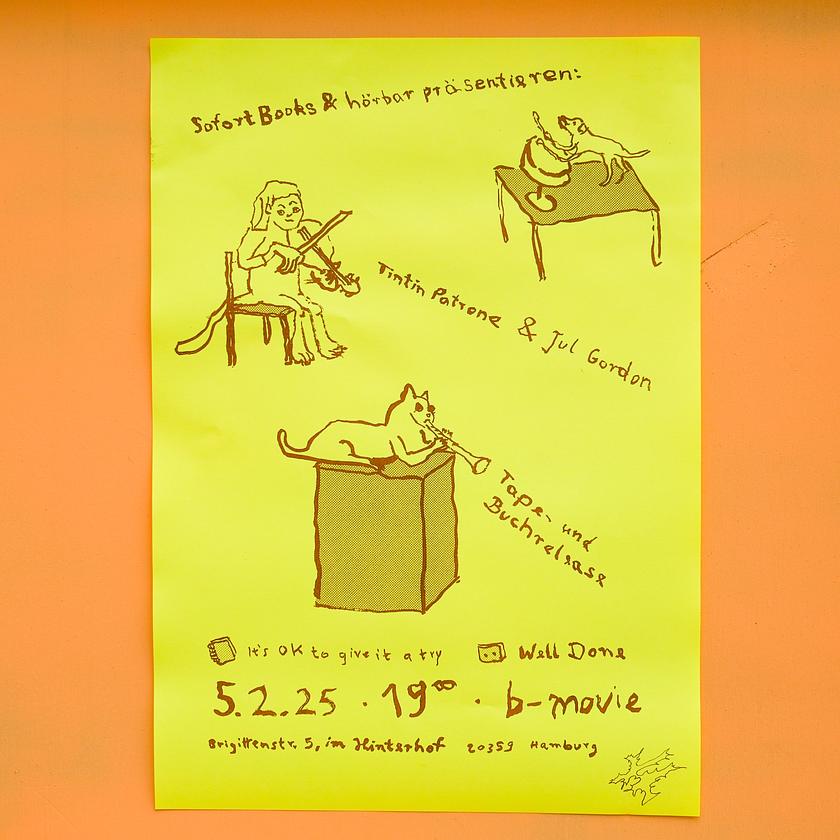 Sofort Books & hörbar präsentieren:
Tintin Patrone & Jul Gordon
Tape- und
Buchrelease
It's OK to give it a try
Well Done
5.2.25 · 19°° · b-movie
Brigittenstr. 5, im Hinterhof 20359 Hamburg